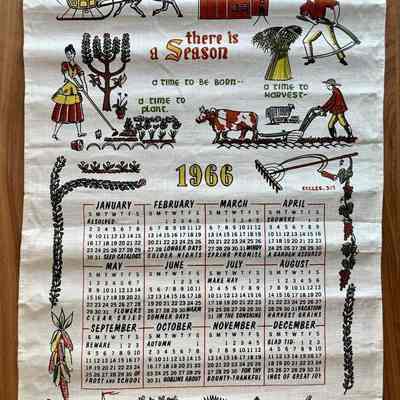 there is
a Season
A TIME TO BE BORN--
A TIME TO
PLANT.
A TIME TO
HARVEST-
1966
JANUARY
S M T W T F S
RESOLVED: 1
2 3 4 5 6 7 8
9 10 11 12 13 14 15
16 17 18 19 20 21 22
23 24 25 26 27 28 29
30 31 SEED CATALOGS
FEBRUARY
S M T W T F S
1 2 3 4 5
6 7 8 9 10 11 12
13 14 15 16 17 18 19
20 21 22 23 24 25 26
27 28 LONGER DAYS
GOLDEN NIGHTS
MARCH
S M T W T F S
1 2 3 4 5
6 7 8 9 10 11 12
13 14 15 16 17 18 19
20 21 22 23 24 25 26
27 28 29 30 31 WINDY
SPRING PROMISE
APRIL
S M T W T F S
SHOWERS 1 2
3 4 5 6 7 8 9
10 11 12 13 14 15 16
17 18 19 20 21 22 23
24 25 26 27 28 29 30
A GARDEN ASSURED
MAY
S M T W T F S
1 2 3 4 5 6 7
8 9 10 11 12 13 14
15 16 17 18 19 20 21
22 23 24 25 26 27 28
29 30 31 FLOWERS
CLEAR SKIES
JUNE
S M T W T F S
1 2 3 4
5 6 7 8 9 10 11
12 13 14 15 16 17 18
19 20 21 22 23 24 25
26 27 28 29 30 WARM
SUMMER DAYS
JULY
S M T W T F S
MAKE HAY 1 2
3 4 5 6 7 8 9
10 11 12 13 14 15 16
17 18 19 20 21 22 23
24 25 26 27 28 29 30
31 IN THE SUNSHINE
AUGUST
S M T W T F S
1 2 3 4 5 6
7 8 9 10 11 12 13
14 15 16 17 18 19 20
21 22 23 24 25 26 27
28 29 30 31 VACATION
HARVEST GRAINS
SEPTEMBER
S M T W T F S
BEWARE 1 2 3
4 5 6 7 8 9 10
11 12 13 14 15 16 17
18 19 20 21 22 23 24
25 26 27 28 29 30 OF
FROST AND SCHOOL
OCTOBER
S M T W T F S
AUTUMN 1
2 3 4 5 6 7 8
9 10 11 12 13 14 15
16 17 18 19 20 21 22
23 24 25 26 27 28 29
30 31 GOBLINS ABOUT
NOVEMBER
S M T W T F S
1 2 3 4 5
6 7 8 9 10 11 12
13 14 15 16 17 18 19
20 21 22 23 24 25 26
27 28 29 30 FOR THY
BOUNTY-THANKFUL
DECEMBER
S M T W T F S
GLAD TID- 1 2 3
4 5 6 7 8 9 10
11 12 13 14 15 16 17
18 19 20 21 22 23 24
25 26 27 28 29 30 31
INGS OF GREAT JOY